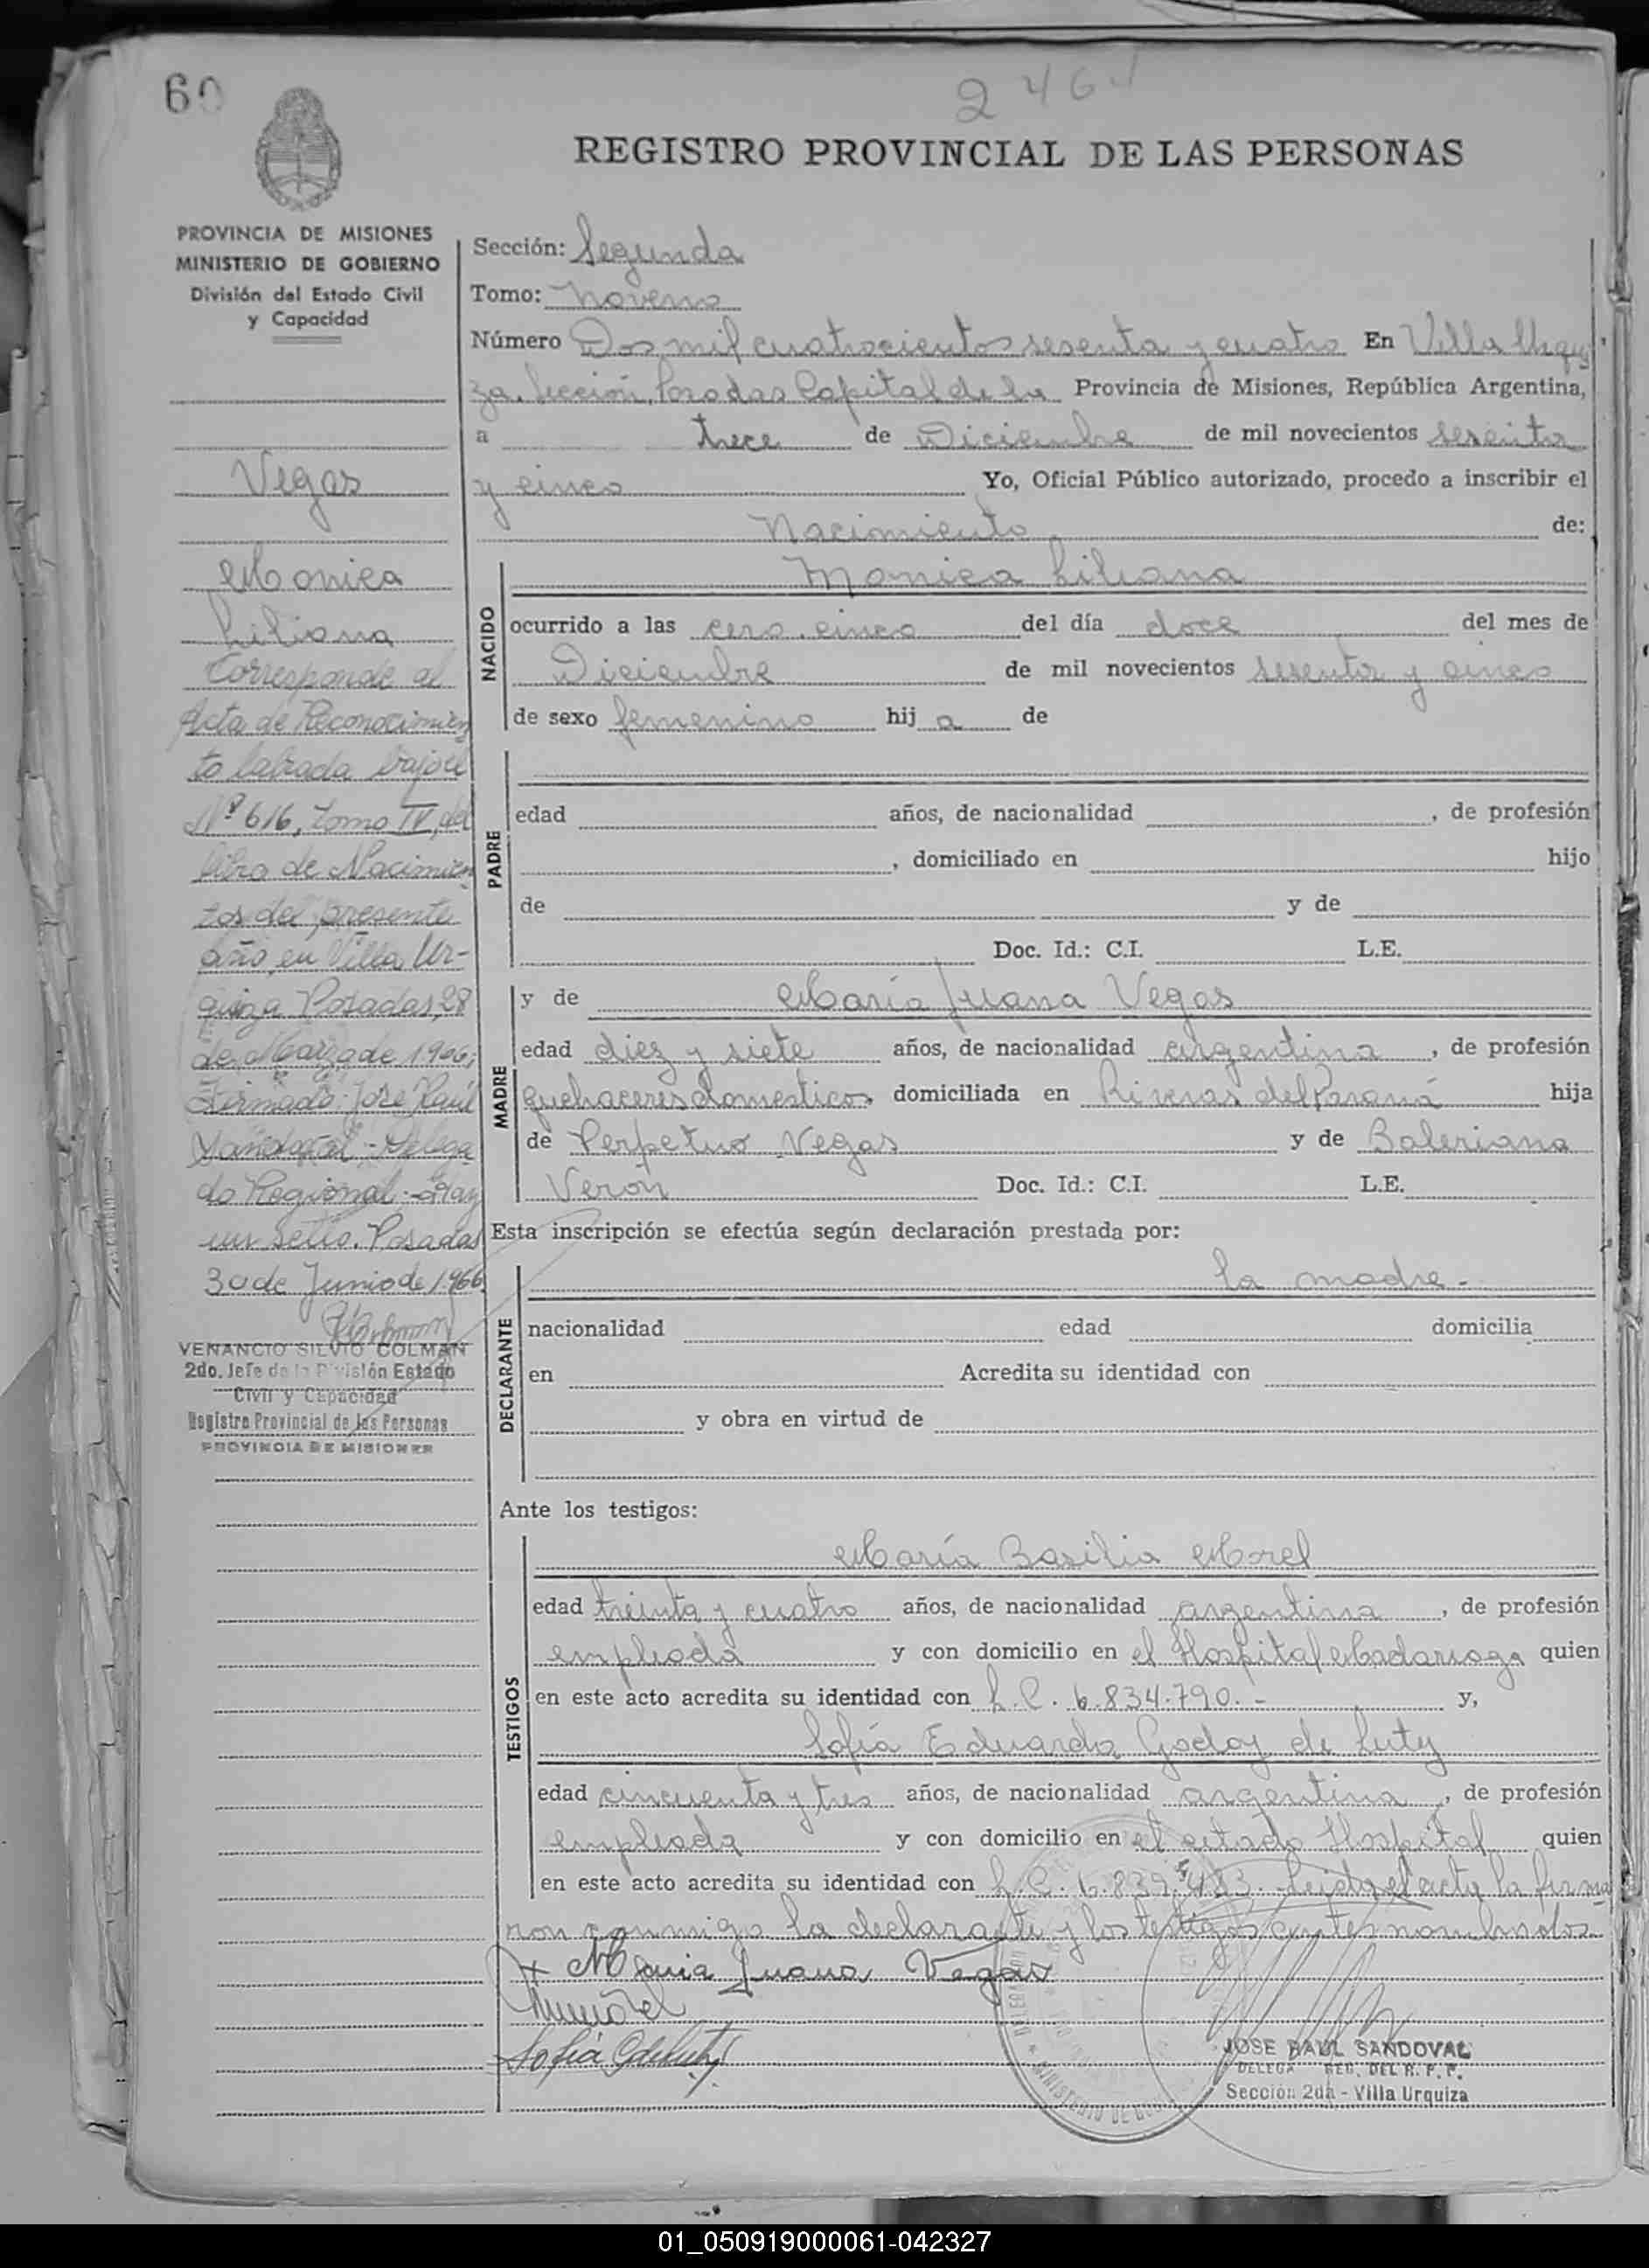 60
2464
REGISTRO PROVINCIAL DE LAS PERSONAS
PROVINCIA DE MISIONES
MINISTERIO DE GOBIERNO
División del Estado Civil
y Capacidad
Vegas
Monica
Liliana
Corresponde al
Acta de Reconocimien
to labrada bajo el
Nº 616, Tomo IV, del
libro de Nacimien
tos del presente
año, en Villa Ur-
quiza Posadas, 28
de Marzo de 1966;
Firmado: José Raúl
Sandoval - Delega
do Regional - Hay
un sello. Posadas
30 de Junio de 1966
VENANCIO SILVIO COLMAN
2do. Jefe de la División Estado
Civil y Capacidad
Registro Provincial de las Personas
PROVINCIA DE MISIONES
Sección: Segunda
Tomo: Noveno
Número Dos mil cuatrocientos sesenta y cuatro En Villa Urqui
za, Sección, Posadas Capital de la Provincia de Misiones, República Argentina,
a trece de Diciembre de mil novecientos sesenta
y cinco Yo, Oficial Público autorizado, procedo a inscribir el
Nacimiento de:
NACIDO
Monica Liliana
ocurrido a las cero, cinco del día doce del mes de
Diciembre de mil novecientos sesenta y cinco
de sexo femenino hij a de
PADRE
edad años, de nacionalidad , de profesión
, domiciliado en hijo
de y de
Doc. Id.: C.I. L.E.
MADRE
y de María Juana Vegas
edad diez y siete años, de nacionalidad argentina , de profesión
quehaceres domesticos domiciliada en Riveras del Paraná hija
de Perpetuo Vegas y de Baleriana
Veron Doc. Id.: C.I. L.E.
Esta inscripción se efectúa según declaración prestada por:
DECLARANTE
la madre.-
nacionalidad edad domicilia
en Acredita su identidad con
y obra en virtud de
Ante los testigos:
TESTIGOS
María Basilia Morel
edad treinta y cuatro años, de nacionalidad argentina , de profesión
empleada y con domicilio en el Hospital Madariaga quien
en este acto acredita su identidad con L.C. 6.834.790.- y,
Sofía Eduarda Godoy de Luty
edad cincuenta y tres años, de nacionalidad argentina , de profesión
empleada y con domicilio en el citado Hospital quien
en este acto acredita su identidad con L.C. Leida el acta la firma
ron conmigo la declarante y los testigos antes nombrados.
Maria Juana Vegas
Sofía G de Luty
JOSE RAUL SANDOVAL
DELEGA REG. DEL R. P. P.
Sección 2da - Villa Urquiza
MINISTERIO DE GOB
01_050919000061-042327